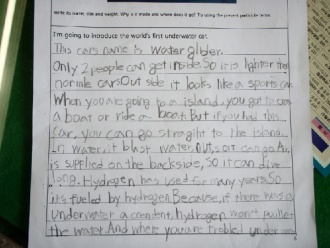 Write its name, size and weight. Why is it made and where does it go? Try using the present participle tense.
I'm going to introduce the world's first underwater car.
This cars name is water glider.
Only 2 people can get inside. So it is lighter then
normle cars. Out side it looks like a sports car.
When you are going to a island, you got to
a boat or ride a boat. But if you had this
car, you can go straight to the island.
In water, it blust water, out, so air
is supplied on the backside, so it can dive
long. Hydrogen has used for many years. So
its fueled by hydrogen. Because, if there was a
underwater accendent, hydrogen won't pullet
the water. And where you are trobled under